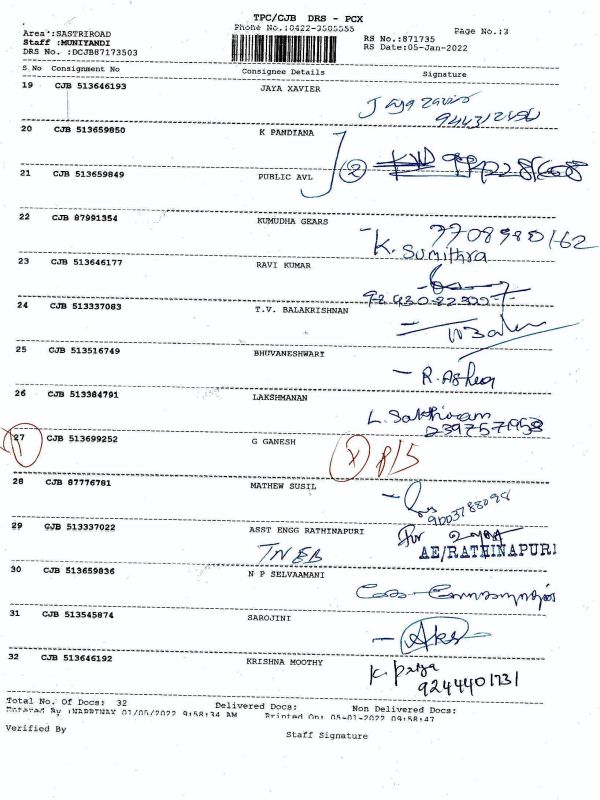 TPC/CJB DRS - PCX
Phone No.:0422-3505555
Page No.:3
Area :SASTRIROAD
Staff :MUNIYANDI
DRS No. :DCJB87173503
RS No.:871735
RS Date:05-Jan-2022
S.No Consignment No Consignee Details Signature
19 CJB 513646193 JAYA XAVIER
Jaya Xavier
20 CJB 513659850 K PANDIANA
21 CJB 513659849 PUBLIC AVL
2
22 CJB 87991354 KUMUDHA GEARS
7708980162
K. Sumithra
23 CJB 513646177 RAVI KUMAR
24 CJB 513337083 T.V. BALAKRISHNAN
25 CJB 513516749 BHUVANESHWARI
R. Asha
26 CJB 513384791 LAKSHMANAN
L. Sakthivam
27 CJB 513699252 G GANESH
28 CJB 87776781 MATHEW SUSIL
29 CJB 513337022 ASST ENGG RATHINAPURI
For
TNEB AE/RATHINAPURI
30 CJB 513659836 N P SELVAAMANI
31 CJB 513545874 SAROJINI
32 CJB 513646192 KRISHNA MOOTHY
K. Priya
9244401731
Total No. Of Docs: 32 Delivered Docs: Non Delivered Docs:
01/05/2022 9:58:34 AM Printed On: 05-01-2022 09:58:47
Verified By
Staff Signature